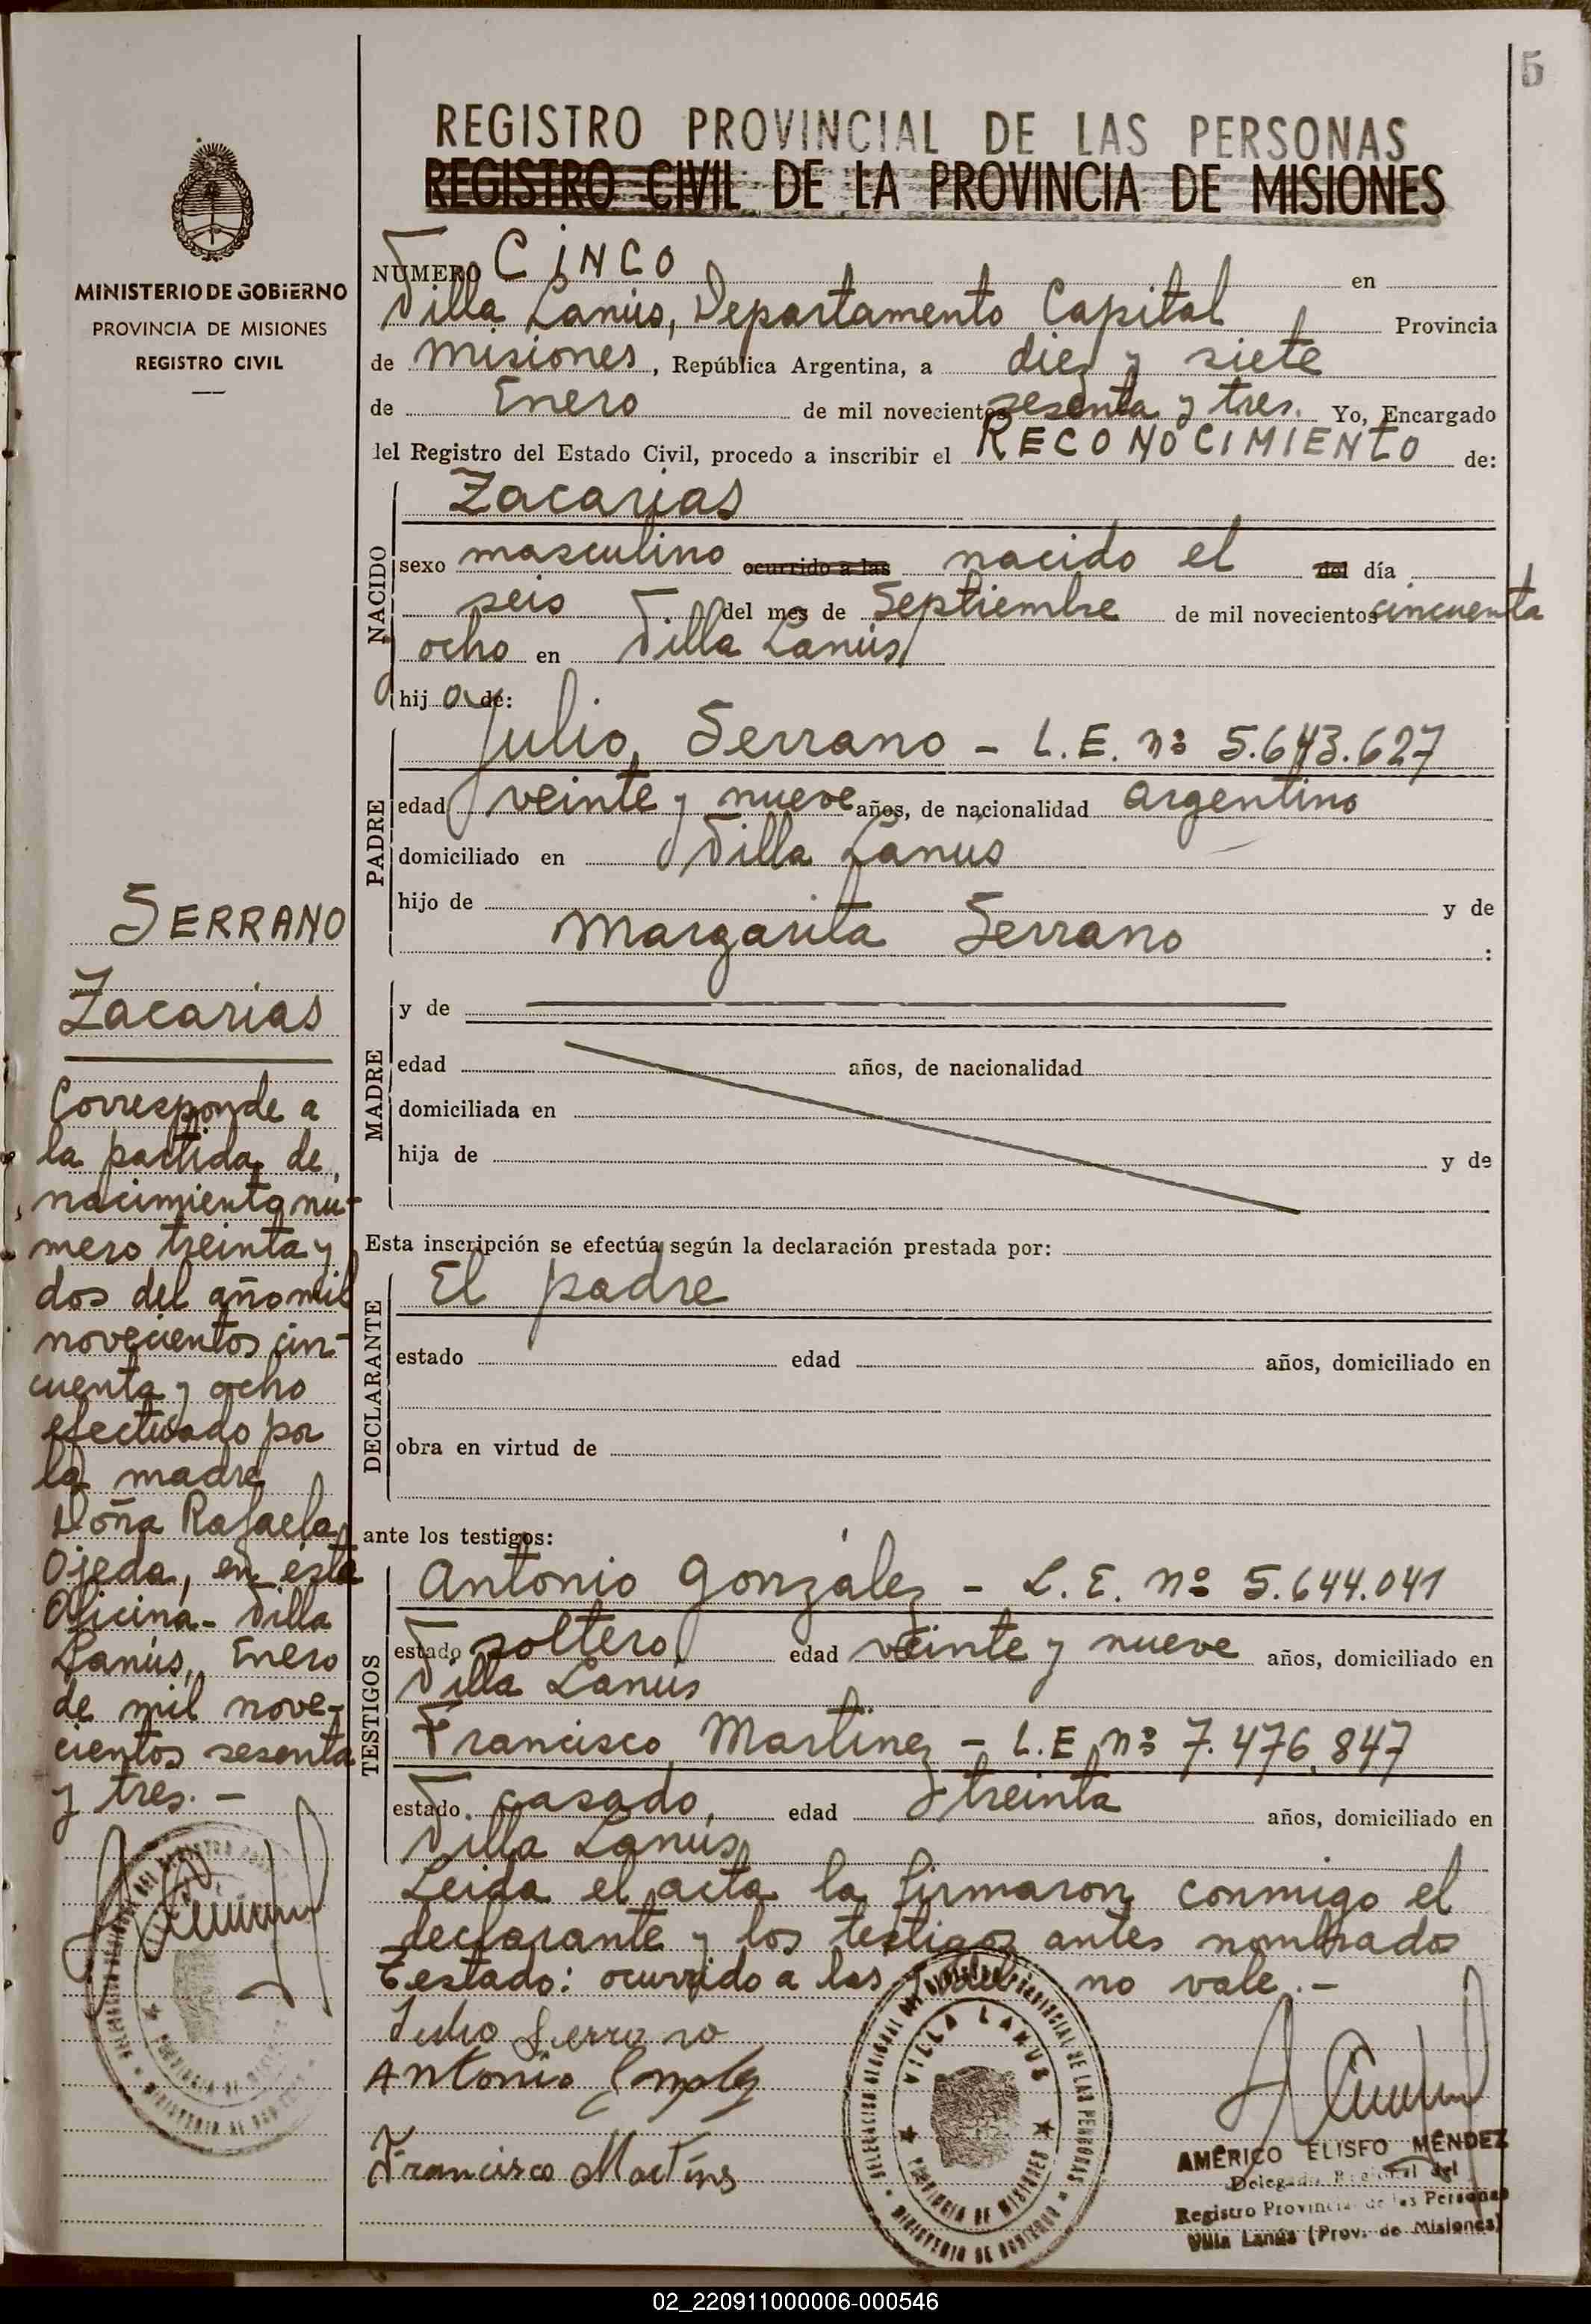 5
REGISTRO PROVINCIAL DE LAS PERSONAS
REGISTRO CIVIL DE LA PROVINCIA DE MISIONES
MINISTERIO DE GOBIERNO
PROVINCIA DE MISIONES
REGISTRO CIVIL
NUMERO CINCO en
Villa Lanús, Departamento Capital Provincia
de Misiones, República Argentina, a diez y siete
de Enero de mil novecientos sesenta y tres. Yo, Encargado
del Registro del Estado Civil, procedo a inscribir el RECONOCIMIENTO de:
NACIDO
Zacarias
sexo masculino ocurrido a las nacido el del día
seis del mes de Septiembre de mil novecientos cincuenta
y ocho en Villa Lanús
hijo de:
PADRE
Julio Serrano - L.E. nº 5.643.627
edad veinte y nueve años, de nacionalidad argentino
domiciliado en Villa Lanús
hijo de y de
Margarita Serrano :
MADRE
y de
edad años, de nacionalidad
domiciliada en
hija de y de
Esta inscripción se efectúa según la declaración prestada por:
DECLARANTE
El padre
estado edad años, domiciliado en
obra en virtud de
ante los testigos:
TESTIGOS
Antonio González - L.E. nº 5.644.041
estado soltero edad veinte y nueve años, domiciliado en
Villa Lanús
Francisco Martinez - L.E. nº 7.476.847
estado casado, edad treinta años, domiciliado en
Villa Lanús
Leida el acta la firmaron conmigo el
declarante y los testigos antes nombrados
Testado: ocurrido a las, del no vale.-
Julio Serrano
Antonio
Francisco
SERRANO
Zacarias
Corresponde a
la partida de
nacimiento nú-
mero treinta y
dos del año mil
novecientos cin-
cuenta y ocho
efectuado por
la madre
Doña Rafaela
Ojeda, en ésta
Oficina- Villa
Lanús, Enero
de mil nove-
cientos sesenta
y tres.-
DELEGACION REGIONAL DEL REGISTRO PROVINCIAL DE LAS PERSONAS
VILLA LANUS
PROVINCIA DE MISIONES
MINISTERIO DE GOBIERNO
AMÉRICO ELISEO MÉNDEZ
Delegado Regional del
Registro Provincial de las Personas
Villa Lanús (Prov. de Misiones)
02_220911000006-000546